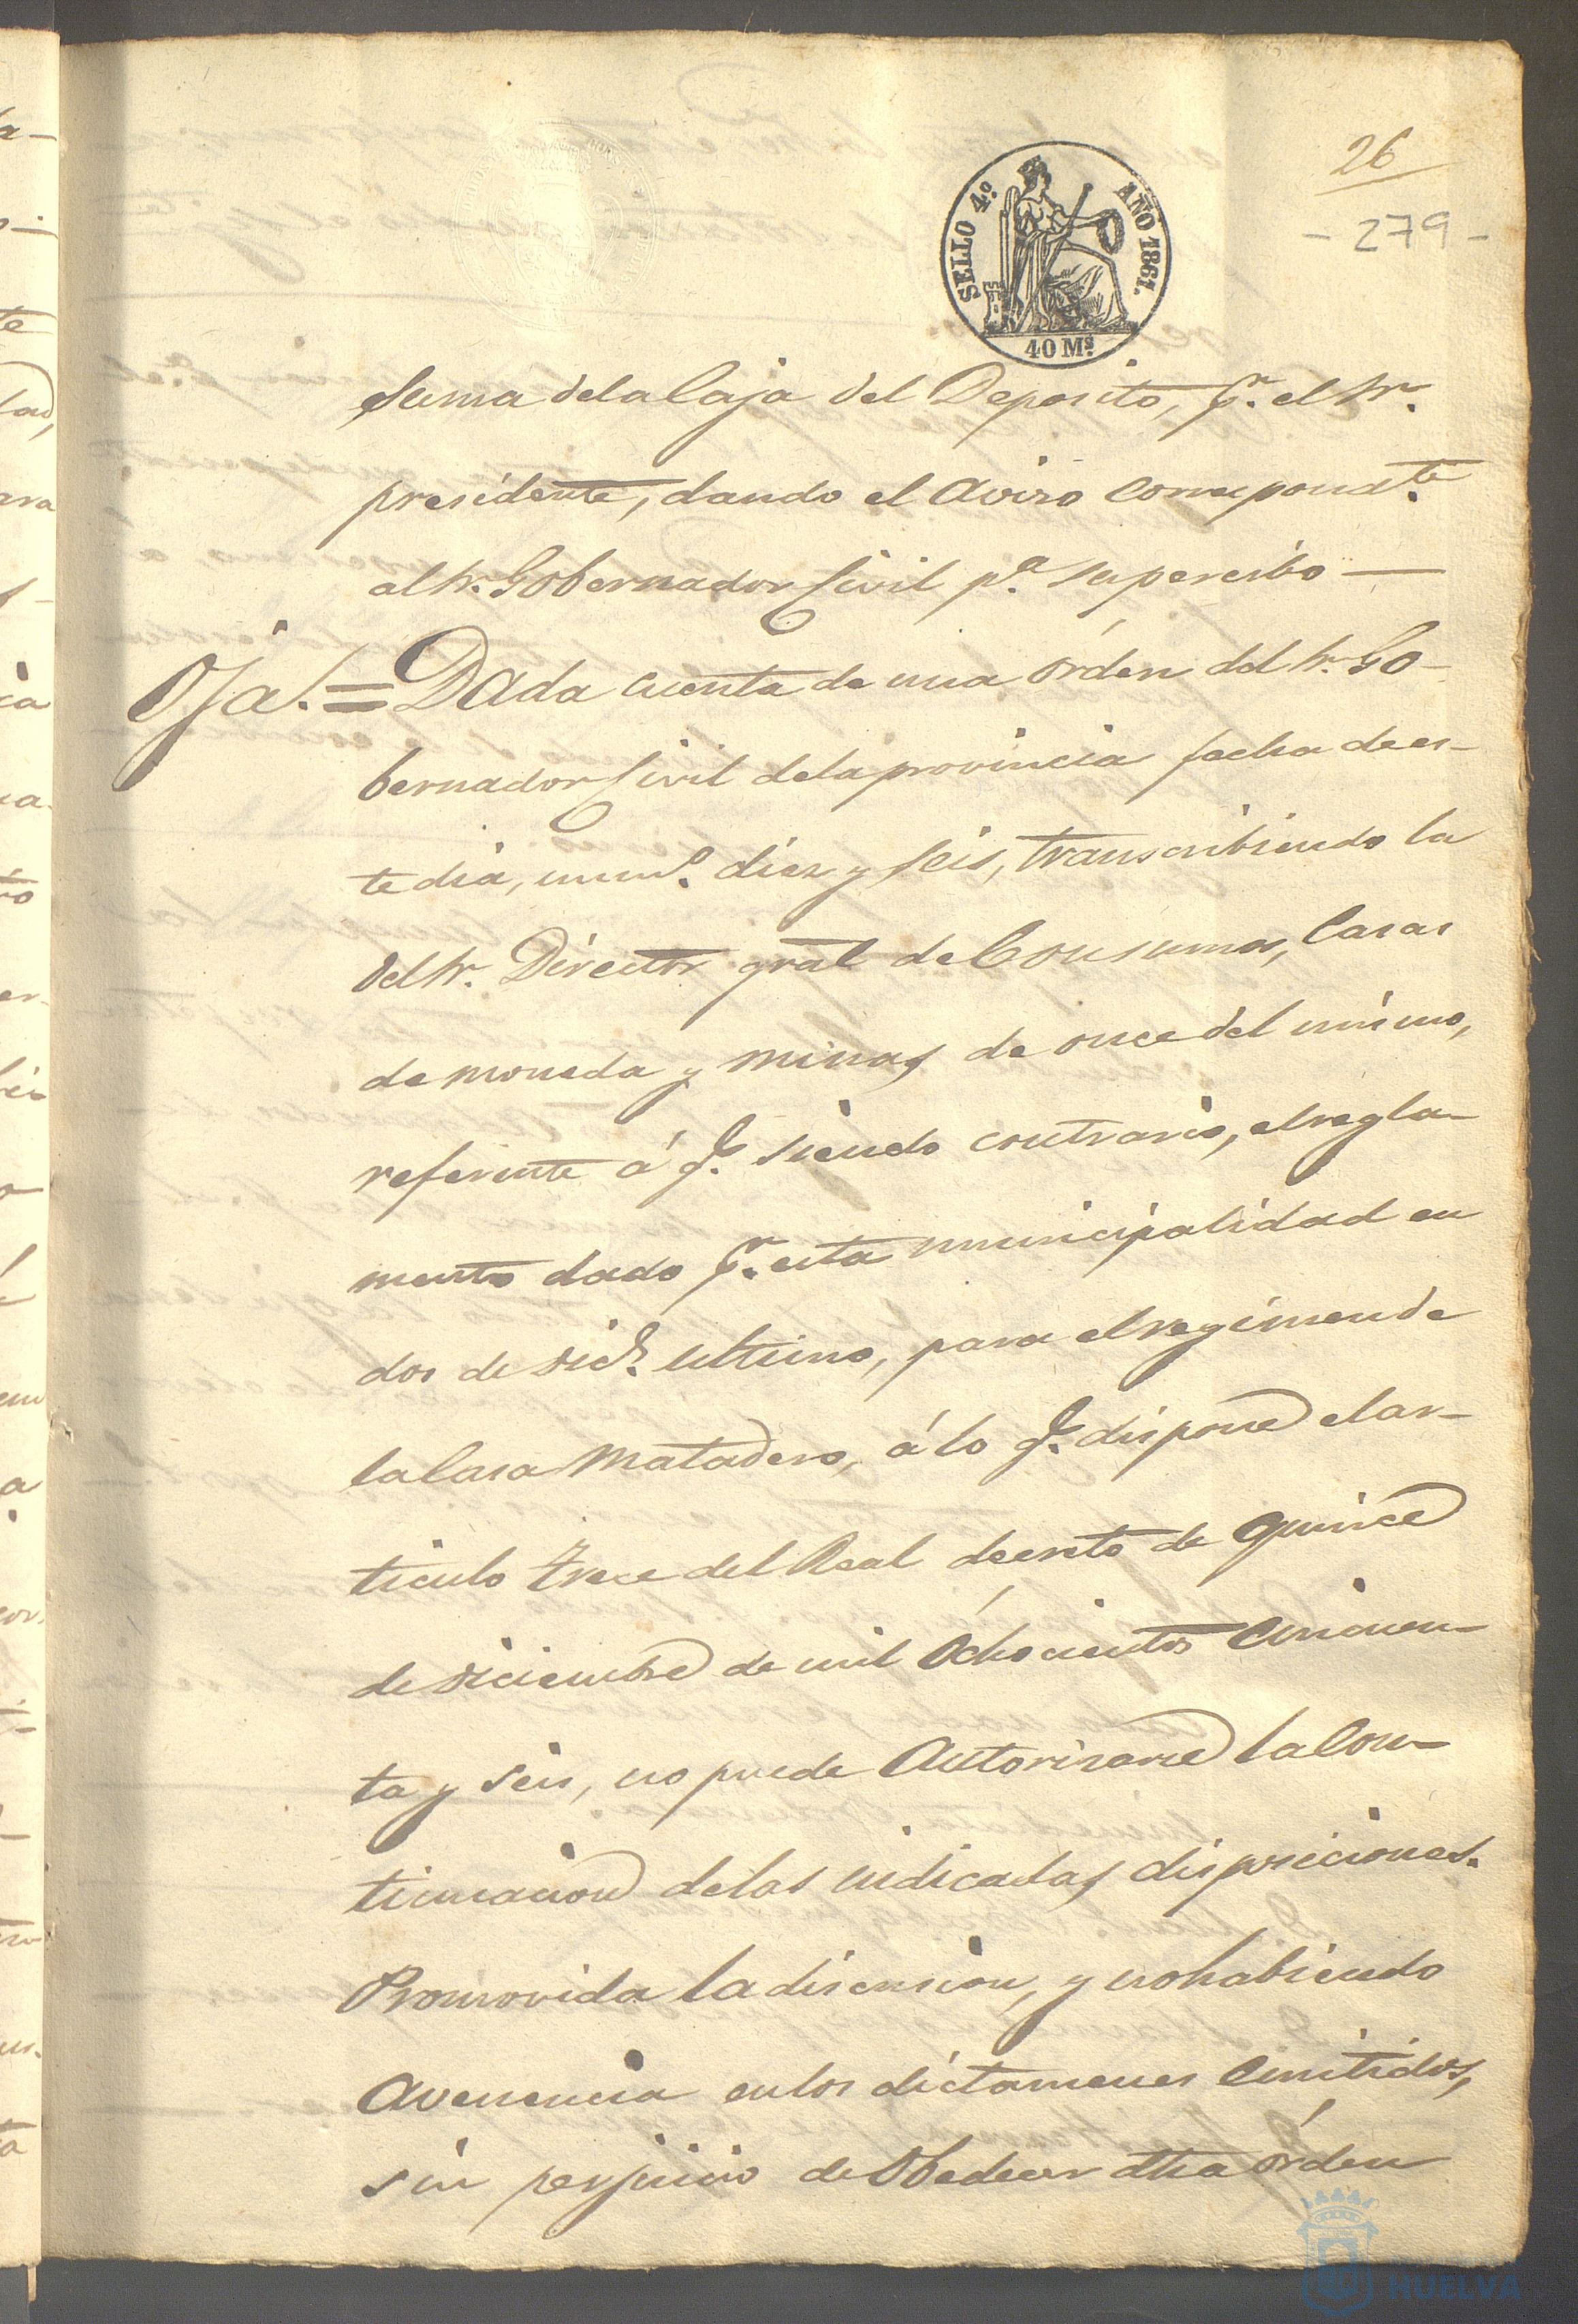 26
- 279 -
SELLO 4º. AÑO 1861.
40 Ms.
suma dela Caja del Deposito, pr. el Sr.
presidente, dando el aviso correspondte.
al Sr. Gobernador Civil pa. su percibo —
Ojo.= Dada cuenta de una órden del Sr. Go-
bernador Civil dela provincia fecha de es-
te dia, numo. diez y seis, transcribiendo la
del Sr. Director gral de Consumos, Casas
de moneda y minas de once del mismo,
referente á q. siendo contrario, el regla-
mento dado pr. esta municipalidad en
dos de Dice. ultimo, para el regimen de
la Casa Matadero, á lo q. dispone el ar-
ticulo trece del Real decreto de quince
de Diciembre de mil ochocientos cincuen-
ta y seis, no puede autorizarse la con-
tinuacion delas indicadas disposiciones.
Promovida la discusion, y no habiendo
avenencia en los dictamenes emitidos,
sin perjuicio de obedecer dha órden
HUELVA